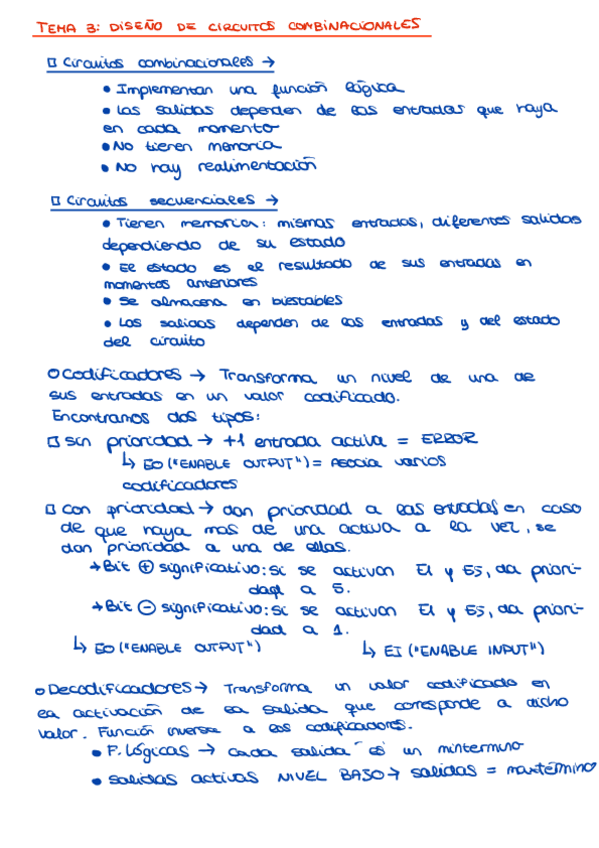 TEMA 3: DISEÑO DE CIRCUITOS COMBINACIONALES
Circuitos combinacionales →
• Implementan una función lógica
• Las salidas dependen de las entradas que haya
en cada momento
• No tienen memoria
• No hay realimentación
Circuitos secuenciales →
• Tienen memoria: mismas entradas, diferentes salidas
dependiendo de su estado
• El estado es el resultado de sus entradas en
momentos anteriores
• Se almacena en biestables
• Las salidas dependen de las entradas y del estado
del circuito
Codificadores → Transforma un nivel de una de
sus entradas en un valor codificado.
Encontramos dos tipos:
sin prioridad → +1 entrada activa = ERROR
↳ EO ("ENABLE OUTPUT") = Asocia varios
codificadores
con prioridad → dan prioridad a las entradas en caso
de que haya mas de una activa a la vez, se
dan prioridad a una de ellas.
→ Bit ⊕ significativo: si se activan E1 y E5, da priori-
dad a 5.
→ Bit ⊖ significativo: si se activan E1 y E5, da priori-
dad a 1.
↳ EO ("ENABLE OUTPUT") ↳ EI ("ENABLE INPUT")
Decodificadores → Transforma un valor codificado en
la activación de la salida que corresponde a dicho
valor. Función inversa a los codificadores.
• F. Lógicas → cada salida es un mintermino
• salidas activas NIVEL BAJO → salidas = maxtérmino